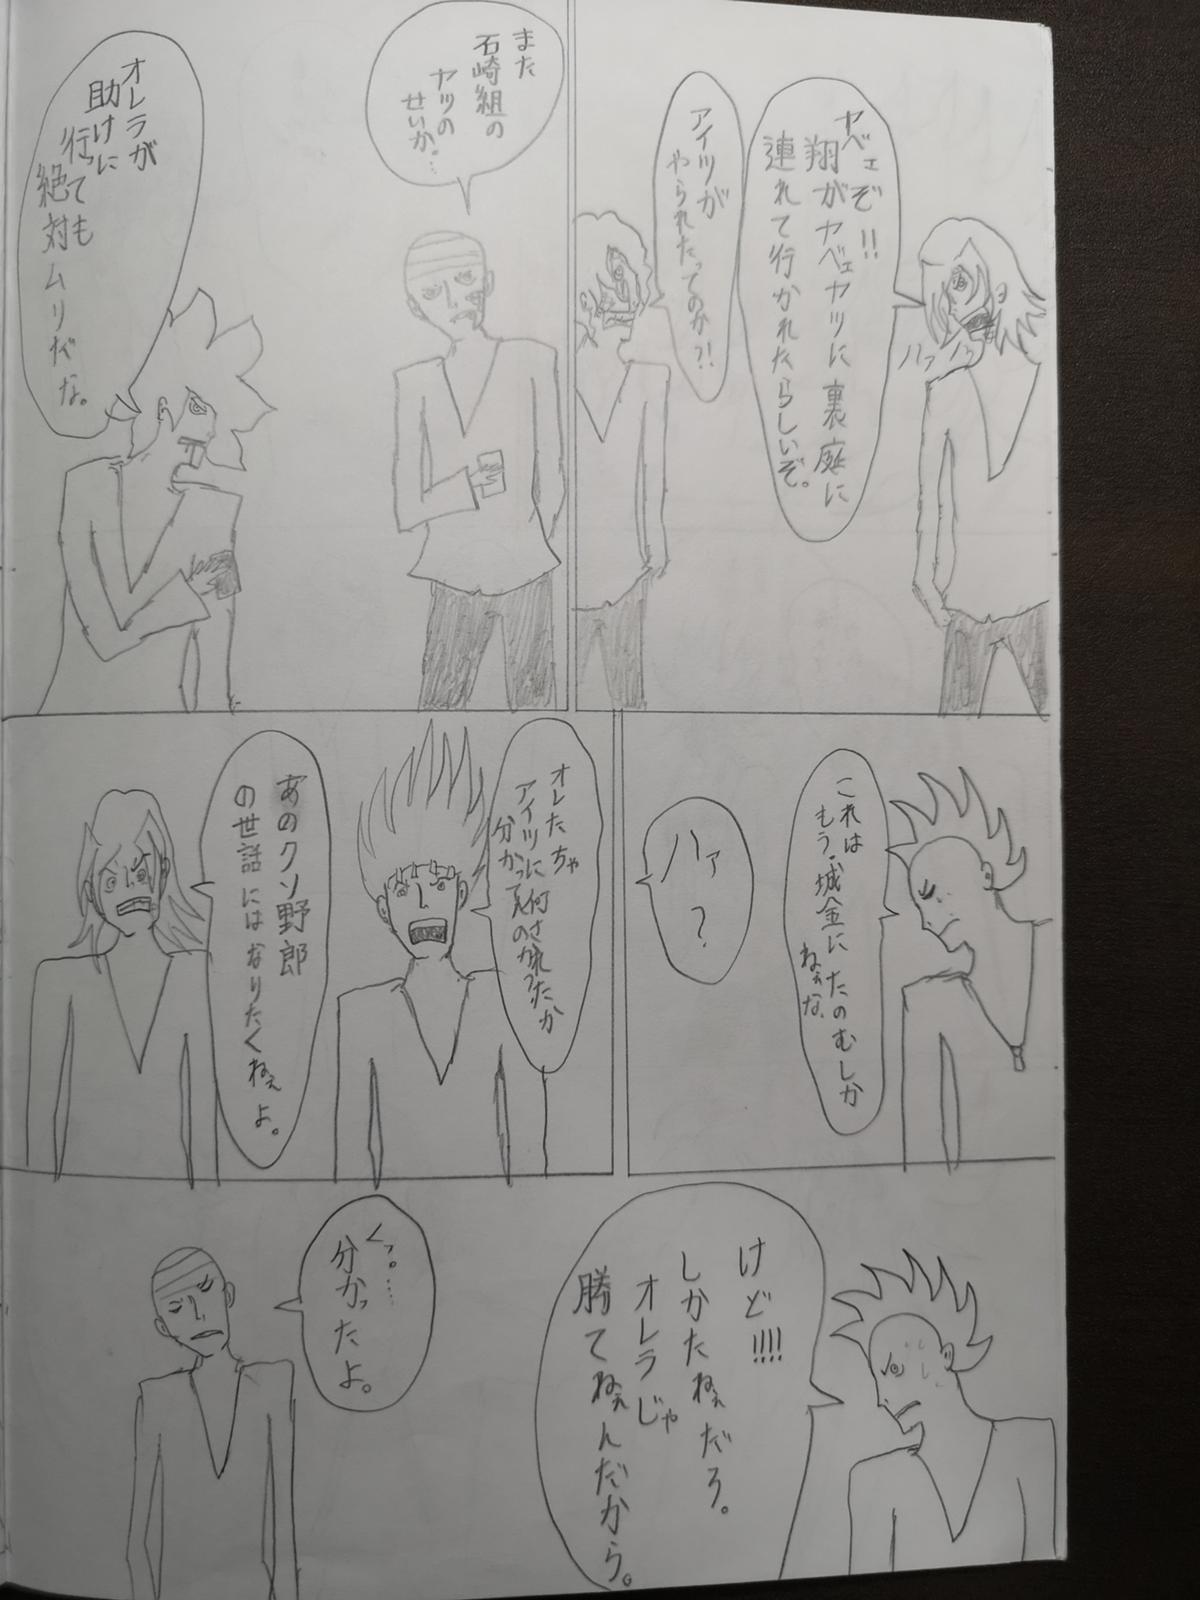 ヤベェぞ!!
翔がヤベェヤツに裏庭に
連れて行かれたらしいぞ。
ハァハァ
アイツが
やられたってのか?!
また
石崎組の
ヤツの
せいか。…
オレラが
助けに
行っても
絶対ムリだな。
これは
もう、城金にたのむしか
ねぇな、
ハァ?
オレたちゃ
アイツに何されたか
分かってんのか?
あのクソ野郎
の世話にはなりたくねぇよ。
けど!!!!
しかたねぇだろ。
オレラじゃ
勝てねぇんだから。
くっ。……
分かったよ。